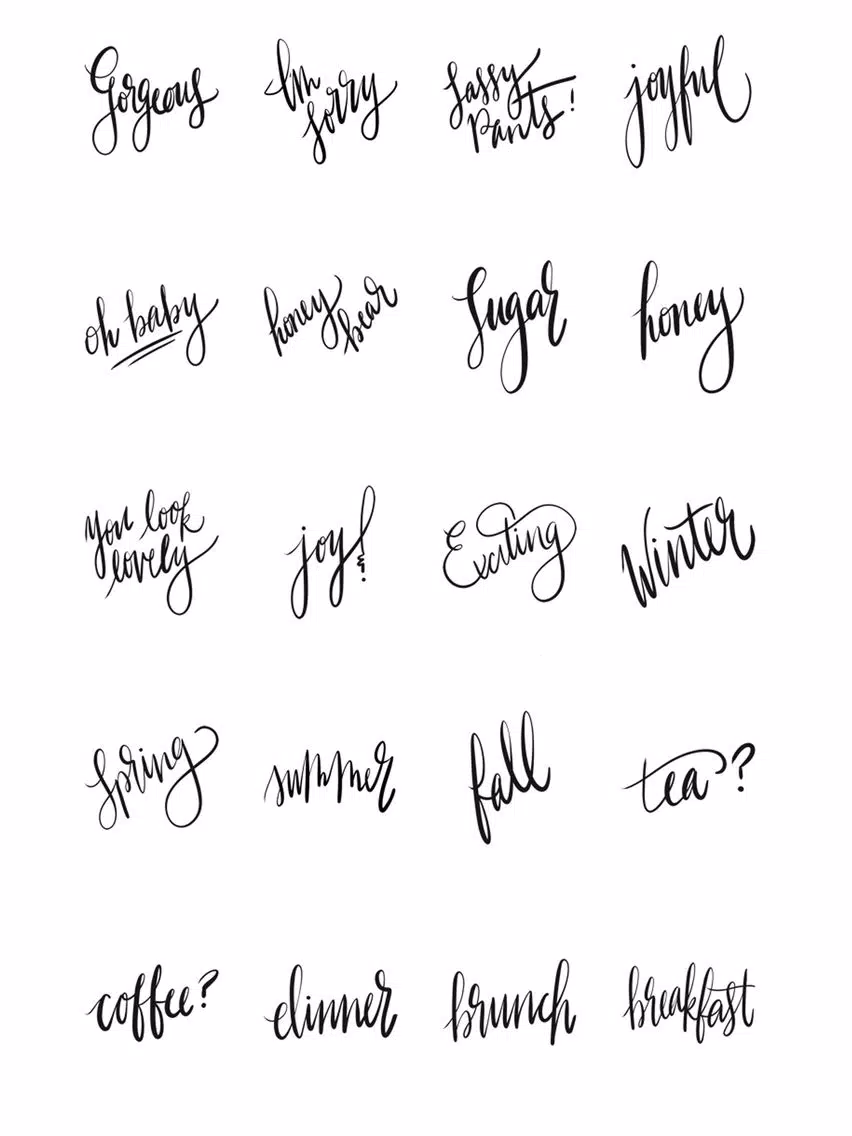 Gorgeous
I'm
sorry
Sassy
Pants!
joyful
oh baby
honey
bear
Sugar
honey
you look
lovely
joy!
Exciting
Winter
Spring
summer
fall
tea?
coffee?
dinner
brunch
breakfast